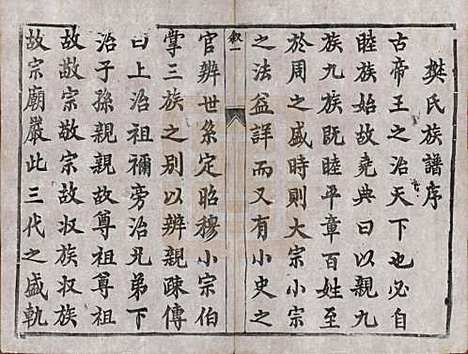 樊氏族譜序
古帝王之治天下也必自
睦族始故堯典曰以親九
族九族既睦平章百姓至
於周之盛時則大宗小宗
之法益詳而又有小史之
敘一
官辨世系定昭穆小宗伯
掌三族之别以辨親疎傳
曰上治祖禰旁治兄弟下
治子孫親親故尊祖尊祖
故敬宗敬宗故収族収族
故宗廟嚴此三代之盛軌